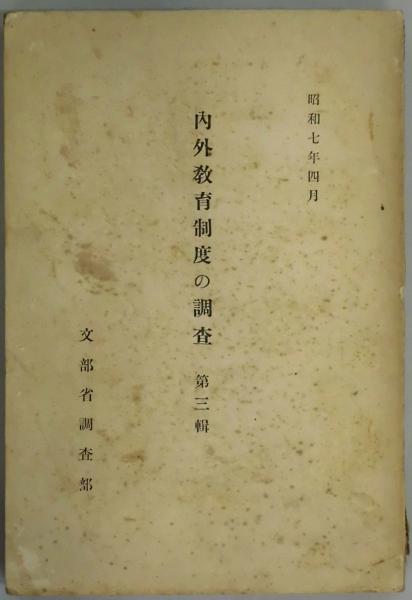 昭和七年四月
內外教育制度の調査 第三輯
文部省調査部